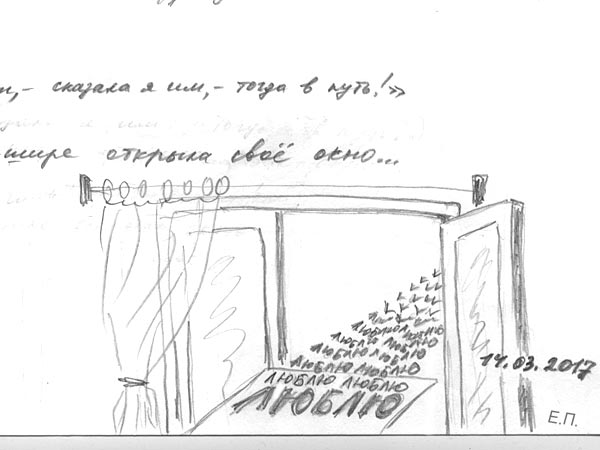 – сказала я им, – тогда в путь!»
шире открыла своё окно...
ЛЮБЛЮ
ЛЮБЛЮ ЛЮБЛЮ
ЛЮБЛЮ ЛЮБЛЮ
ЛЮБЛЮ ЛЮБЛЮ
ЛЮБЛЮ ЛЮБЛЮ
14.03.2017
ЛЮБЛЮ ЛЮБЛЮ
ЛЮБЛЮ
Е.П.